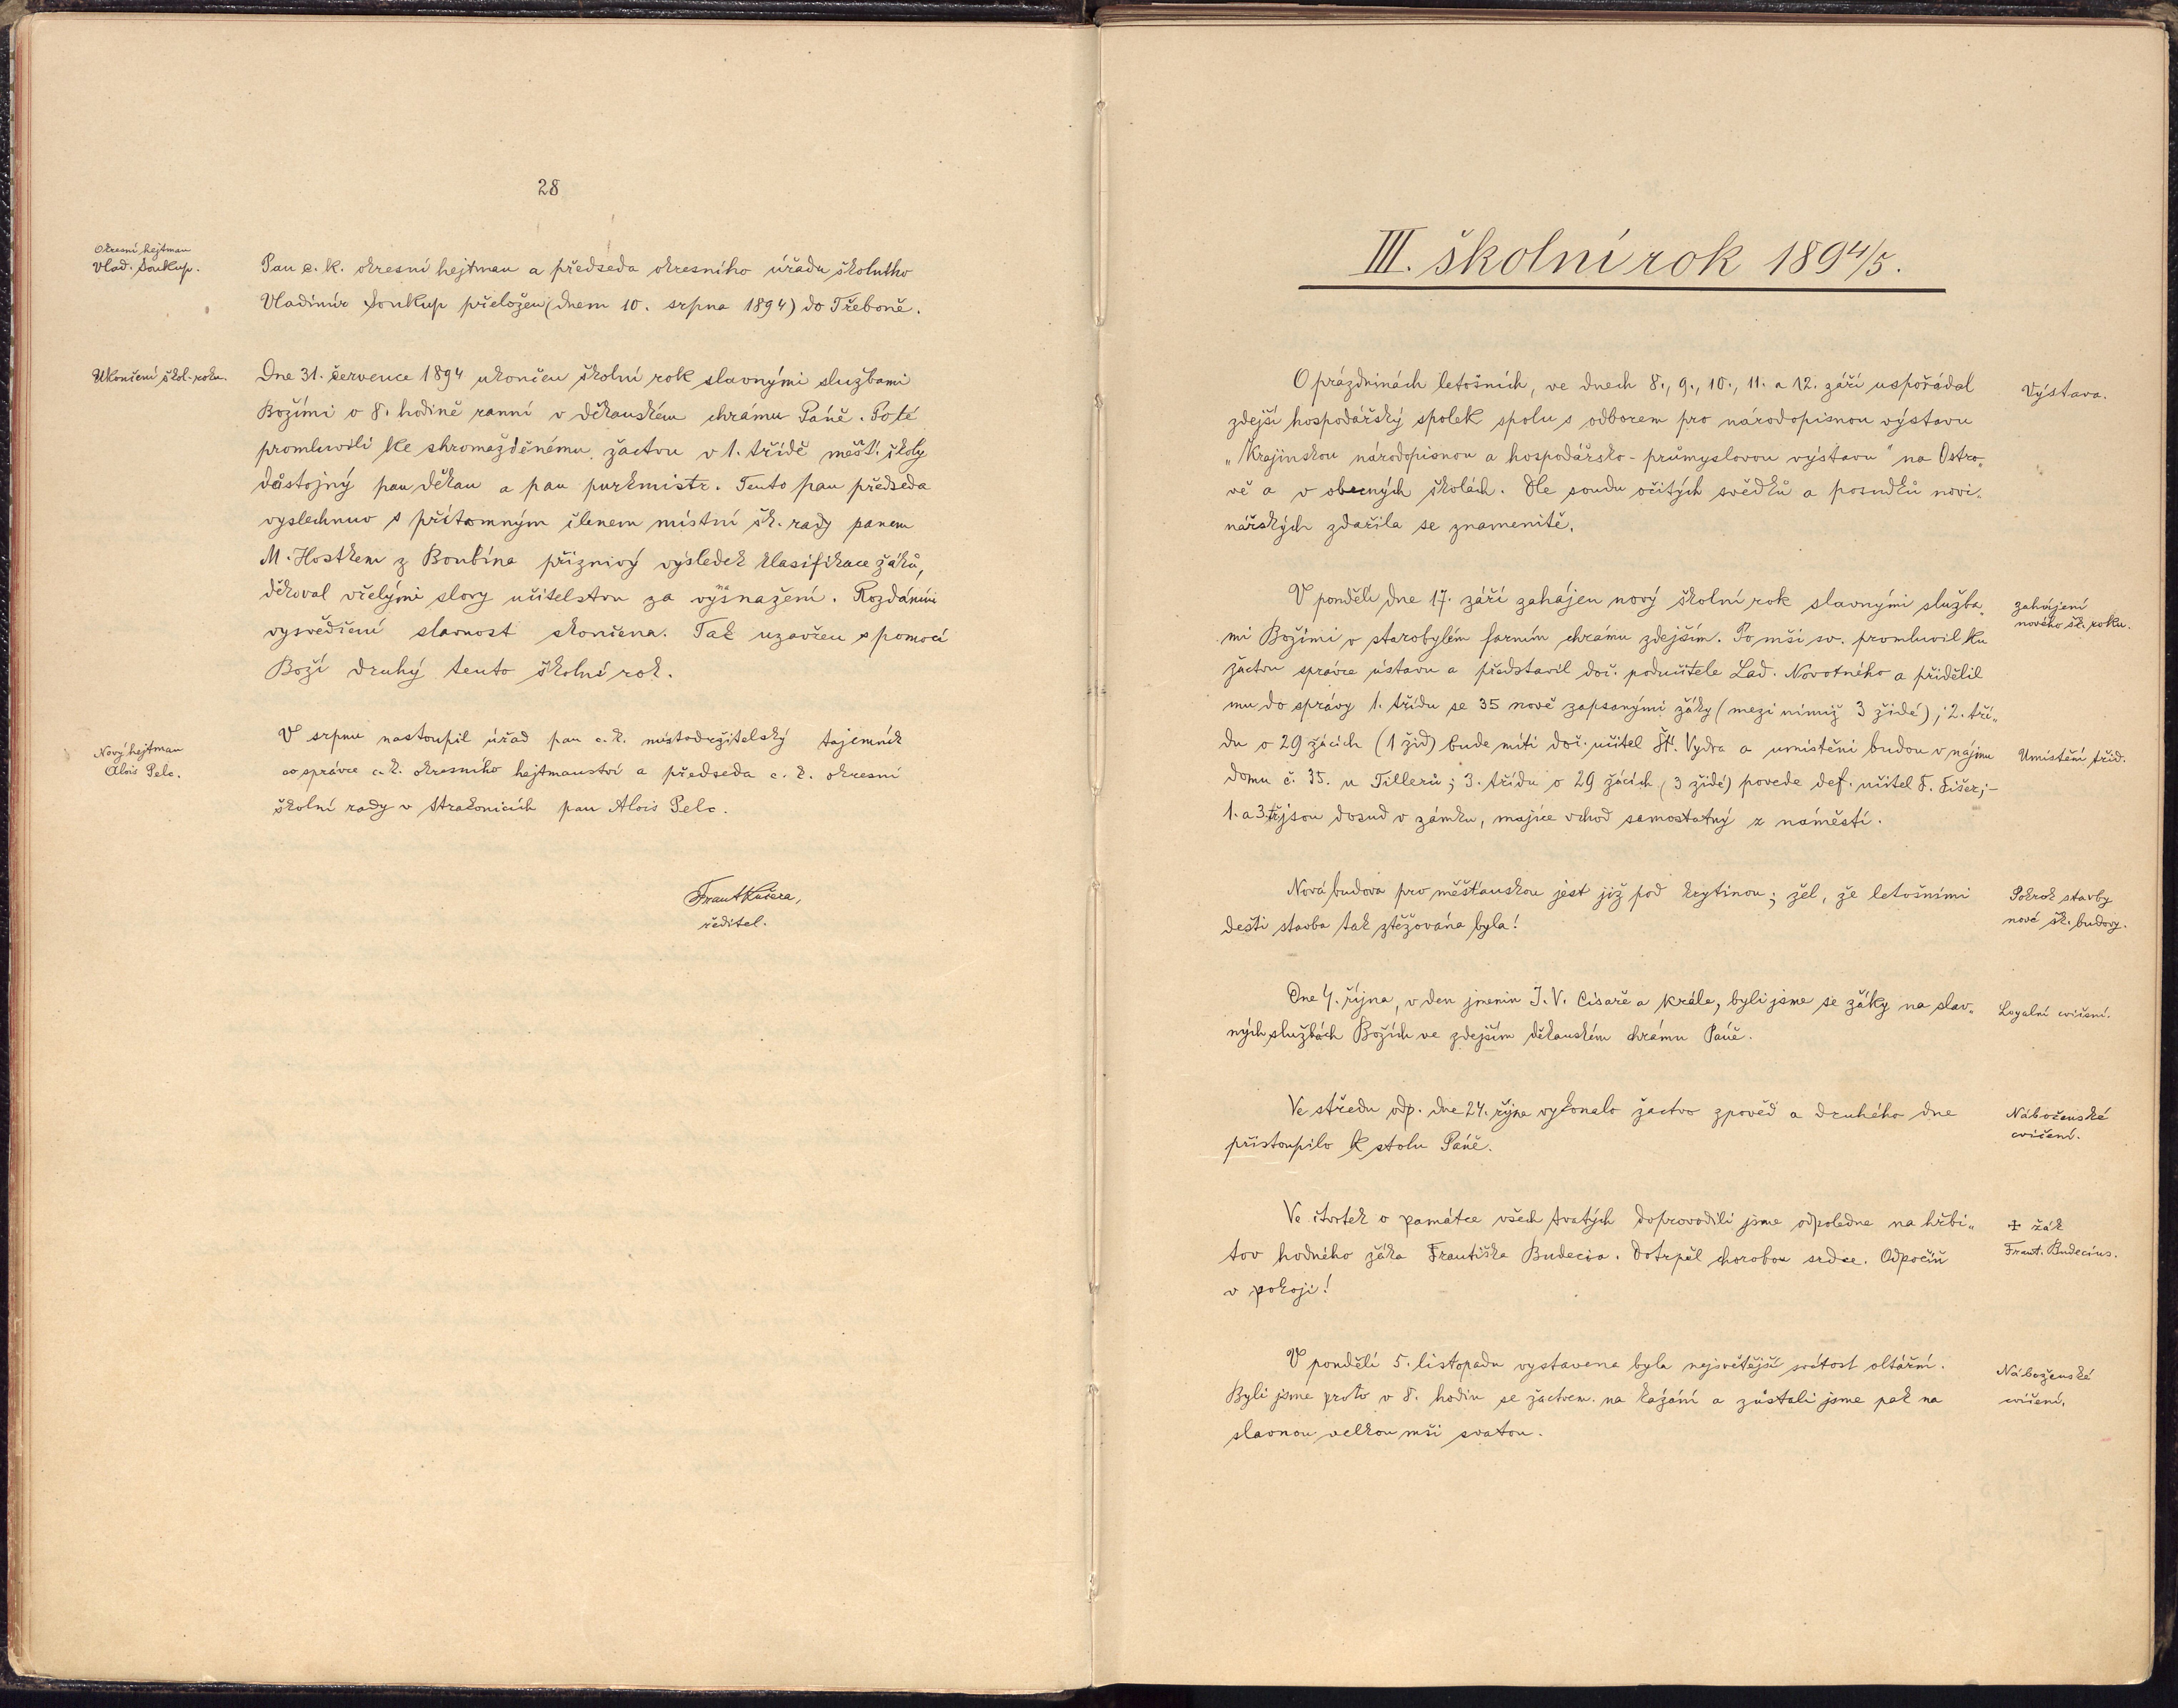 28
Okresní hejtman
Vlad. Soukup.
Pan c. k. okresní hejtman a předseda okresního úřadu školního
Vladimír Soukup přeložen (dnem 10. srpna 1894) do Třeboně.
Ukončení škol. roku.
Dne 31. července 1894 ukončen školní rok slavnými službami
Božími o 8. hodině ranní v děkanském chrámu Páně. Poté
promluvili ke shromážděnému žactvu v 1. třídě měšť. školy
důstojný pan děkan a pan purkmistr. Tento pan předseda
vyslechnuv s přítomným členem místní šk. rady panem
M. Hostkem z Boubína příznivý výsledek klasifikace žáků,
děkoval vřelými slovy učitelstvu za vynasnažení. Rozdáním
vysvědčení slavnost skončena. Tak uzavřen s pomocí
Boží druhý tento školní rok.
Nový hejtman
Alois Pelc.
V srpnu nastoupil úřad pan c. k. místodržitelský tajemník
co správce c. k. okresního hejtmanství a předseda c. k. okresní
školní rady v Strakonicích pan Alois Pelc.
Frant Kučera,
ředitel.
III. školní rok 1894/5.
O prázdninách letošních, ve dnech 8., 9., 10., 11. a 12. září uspořádal
zdejší hospodářský spolek spolu s odborem pro národopisnou výstavu
„Krajinskou národopisnou a hospodářsko-průmyslovou výstavu" na Ostro„
vě a v obecných školách. Dle soudu očitých svědků a posudků novi„
nářských zdařila se znamenitě.
Výstava.
V pondělí dne 17. září zahájen nový školní rok slavnými služba„
mi Božími v starobylém farním chrámu zdejším. Po mši sv. promluvil ku
žactvu správce ústavu a představil doč. podučitele Lad. Novotného a přidělil
mu do správy 1. třídu se 35 nově zapsanými žáky (mezi nimiž 3 židé); 2. tří„
du o 29 žácích (1 žid) bude míti doč. učitel Št. Vydra a umístěni budou v nájmu
domu č. 35. u Tillerů; 3. třídu o 29 žácích (3 židé) povede def. učitel F. Fišer;–
1. a 3. tř. jsou dosud v zámku, majíce vchod samostatný z náměstí.
zahájení
nového šk. roku.
Umístění tříd.
Nová budova pro měšťanskou jest již pod krytinou; žel, že letošními
dešti stavba tak ztěžována byla!
Pokrok stavby
nové šk. budovy.
Dne 4. října, v den jmenin J. V. Císaře a krále, byli jsme se žáky na slav„
ných službách Božích ve zdejším děkanském chrámu Páně.
Loyalní cvičení.
Ve středu odp. dne 24. října vykonalo žactvo zpověď a druhého dne
přistoupilo k stolu Páně.
Náboženské
cvičení.
Ve čtvrtek o památce všech svatých doprovodili jsme odpoledne na hřbi„
tov hodného žáka Františka Budecia. Dotrpěl chorobou srdce. Odpočiň
v pokoji!
✠ žák
Frant. Budecius.
V pondělí 5. listopadu vystavena byla nejsvětější svátost oltářní.
Byli jsme proto v 8. hodin se žactvem na kázání a zůstali jsme pak na
slavnou velkou mši svatou.
Náboženské
cvičení.